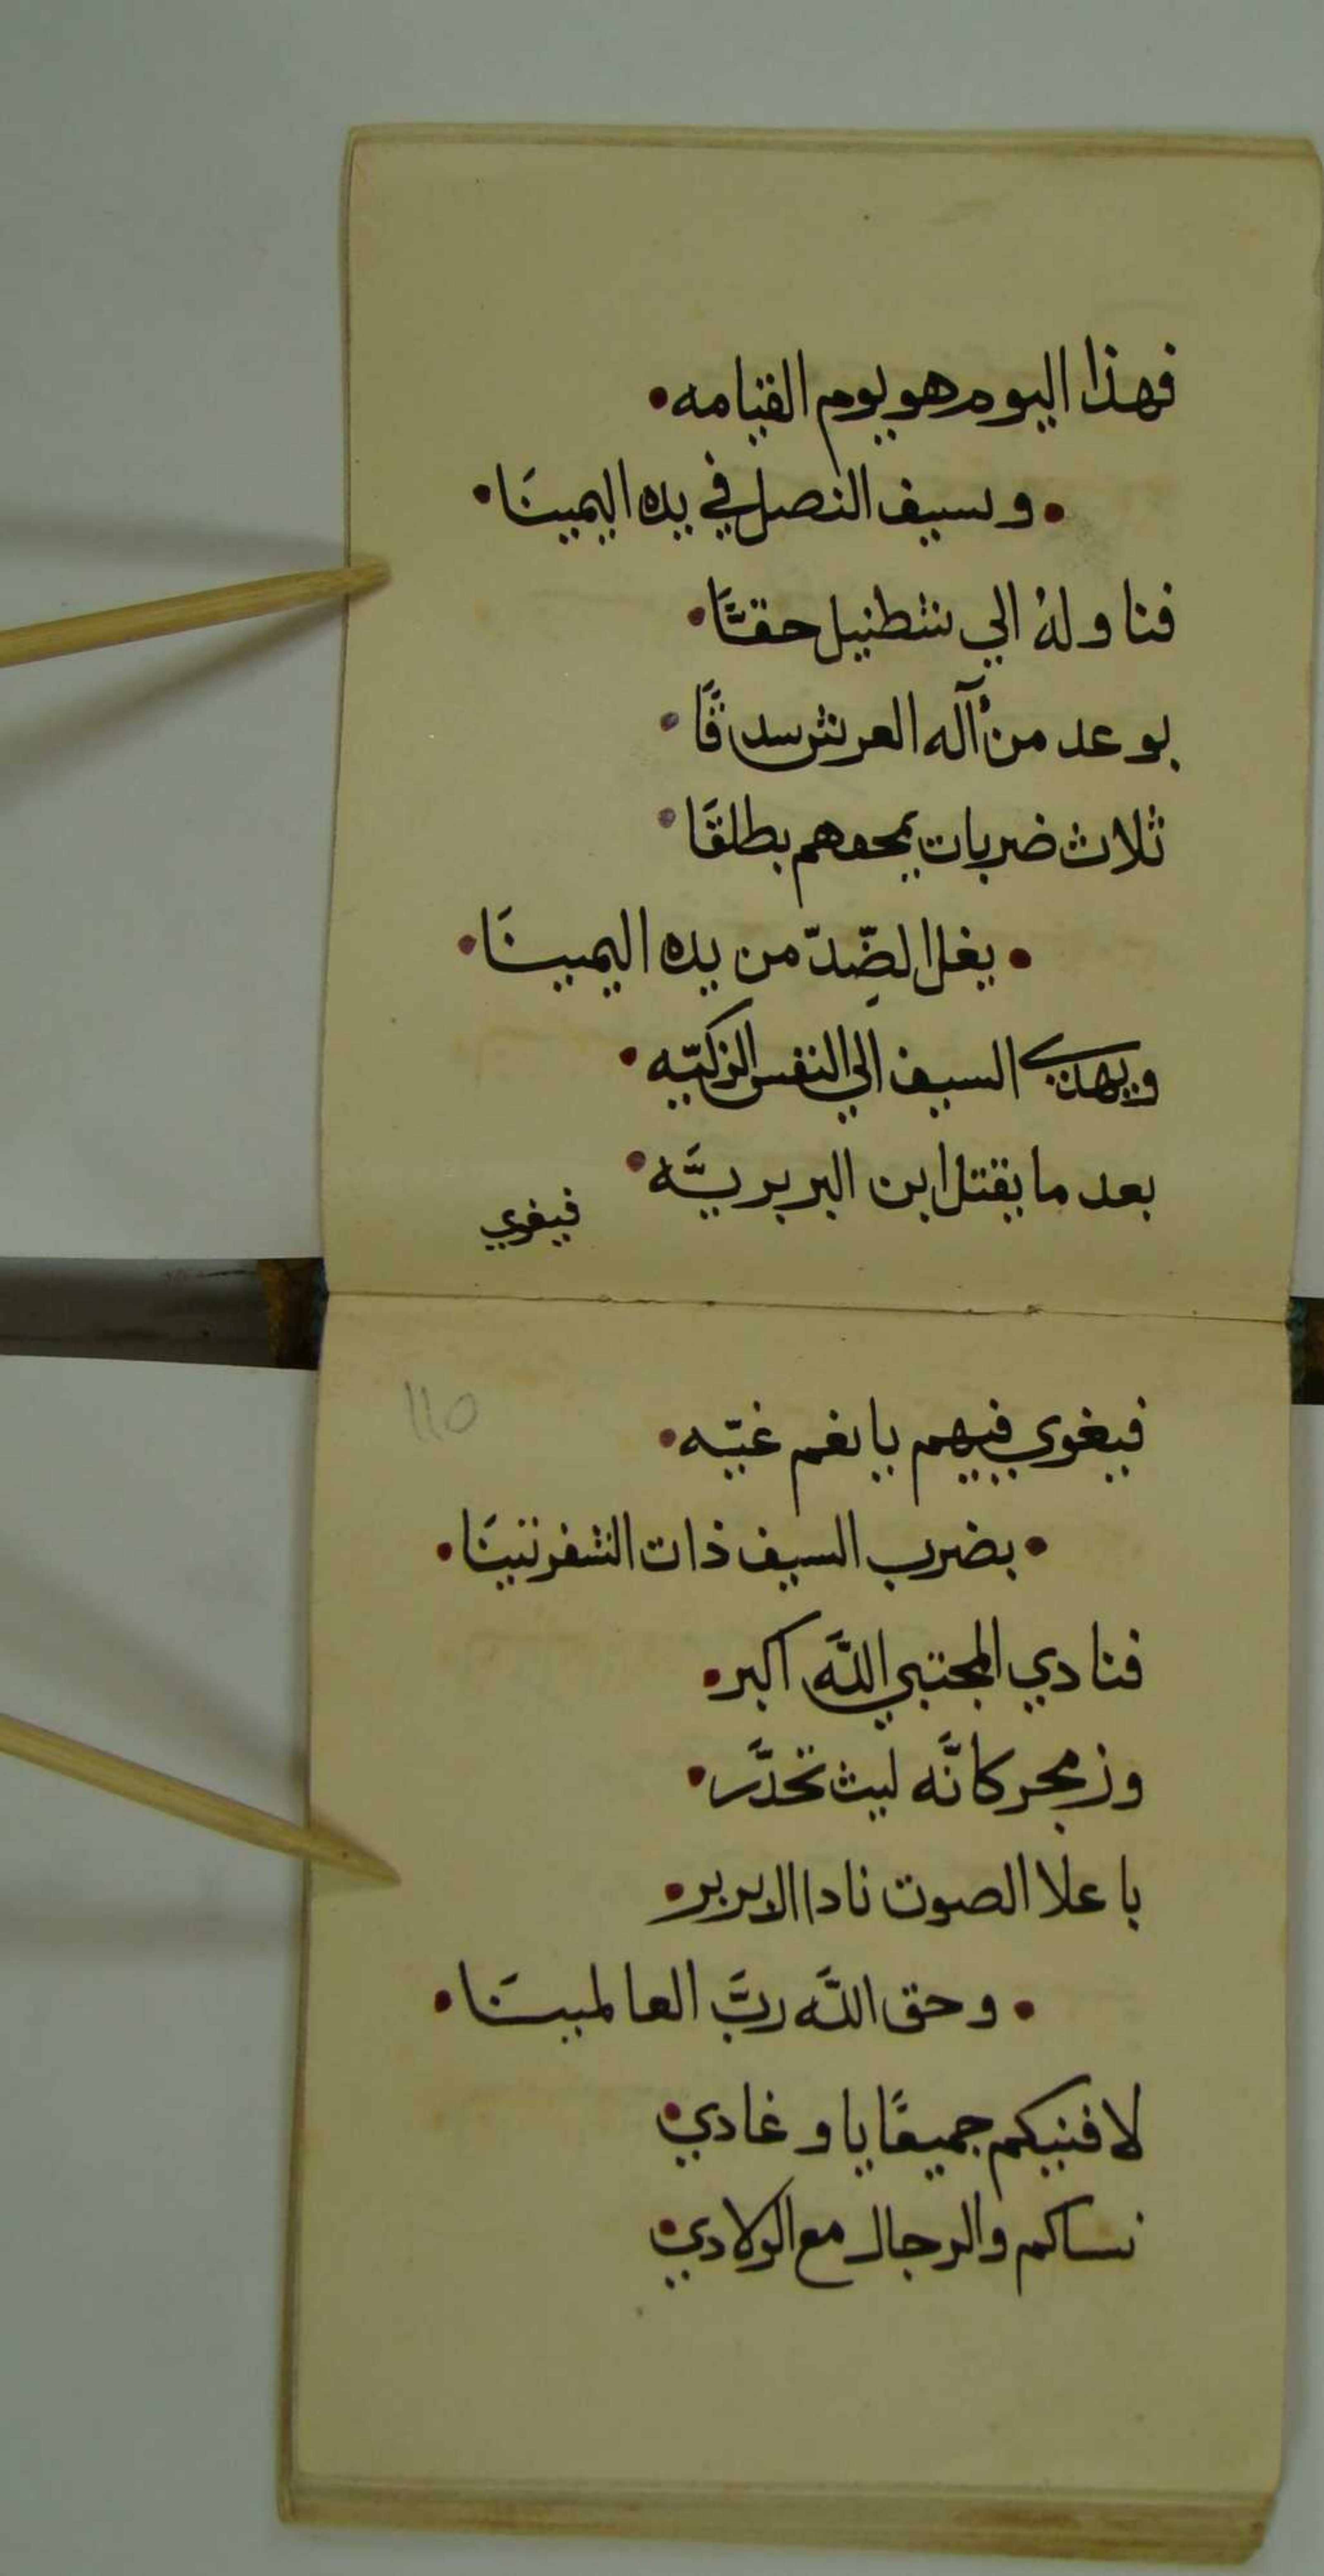 فهذا اليوم هو يوم القيامه •
• وسيف النصل في يده اليمينَا •
فناولهُ الي شطنيل حقًّا •
بوعد من آله العرش سدقًا •
ثلاث ضربات يمحوهم بطلقَا •
• يغل الضّدّ من يده اليمينَا •
ويهدي السيف الي النفس الزكيّه •
بعد ما يقتل ابن البربريَّه •
فيغوي
فيغوي فيهم يا نعم غيّه •
• بضرب السيف ذات الشفرتينَا •
فنادي المجتبي اللَّه اكبر •
وزمجر كانَّه ليث تخدَّر •
باعلا الصوت نادا الابربر •
• وحق اللَّه ربَّ العالمينَا •
لافنيكم جميعًا يا وغادي •
نساكم والرجال مع الولادي •
110